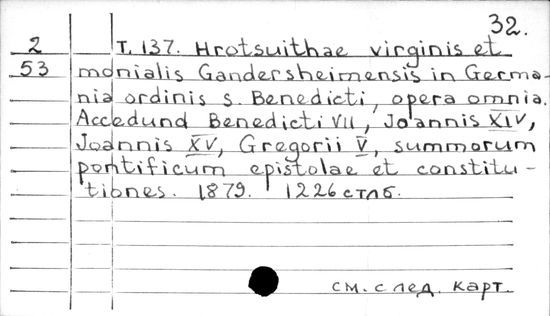 32.
2 T. 137. Hrotsuithae virginis et
53 monialis Gandersheimensis in Germa-
nia ordinis s. Benedicti, opera omnia.
Accedund Benedicti VII, Joannis XIV,
Joannis XV, Gregorii V, summorum
pontificum epistolae et constitu-
tiones. 1879. 1226 стлб.
см. след. карт.